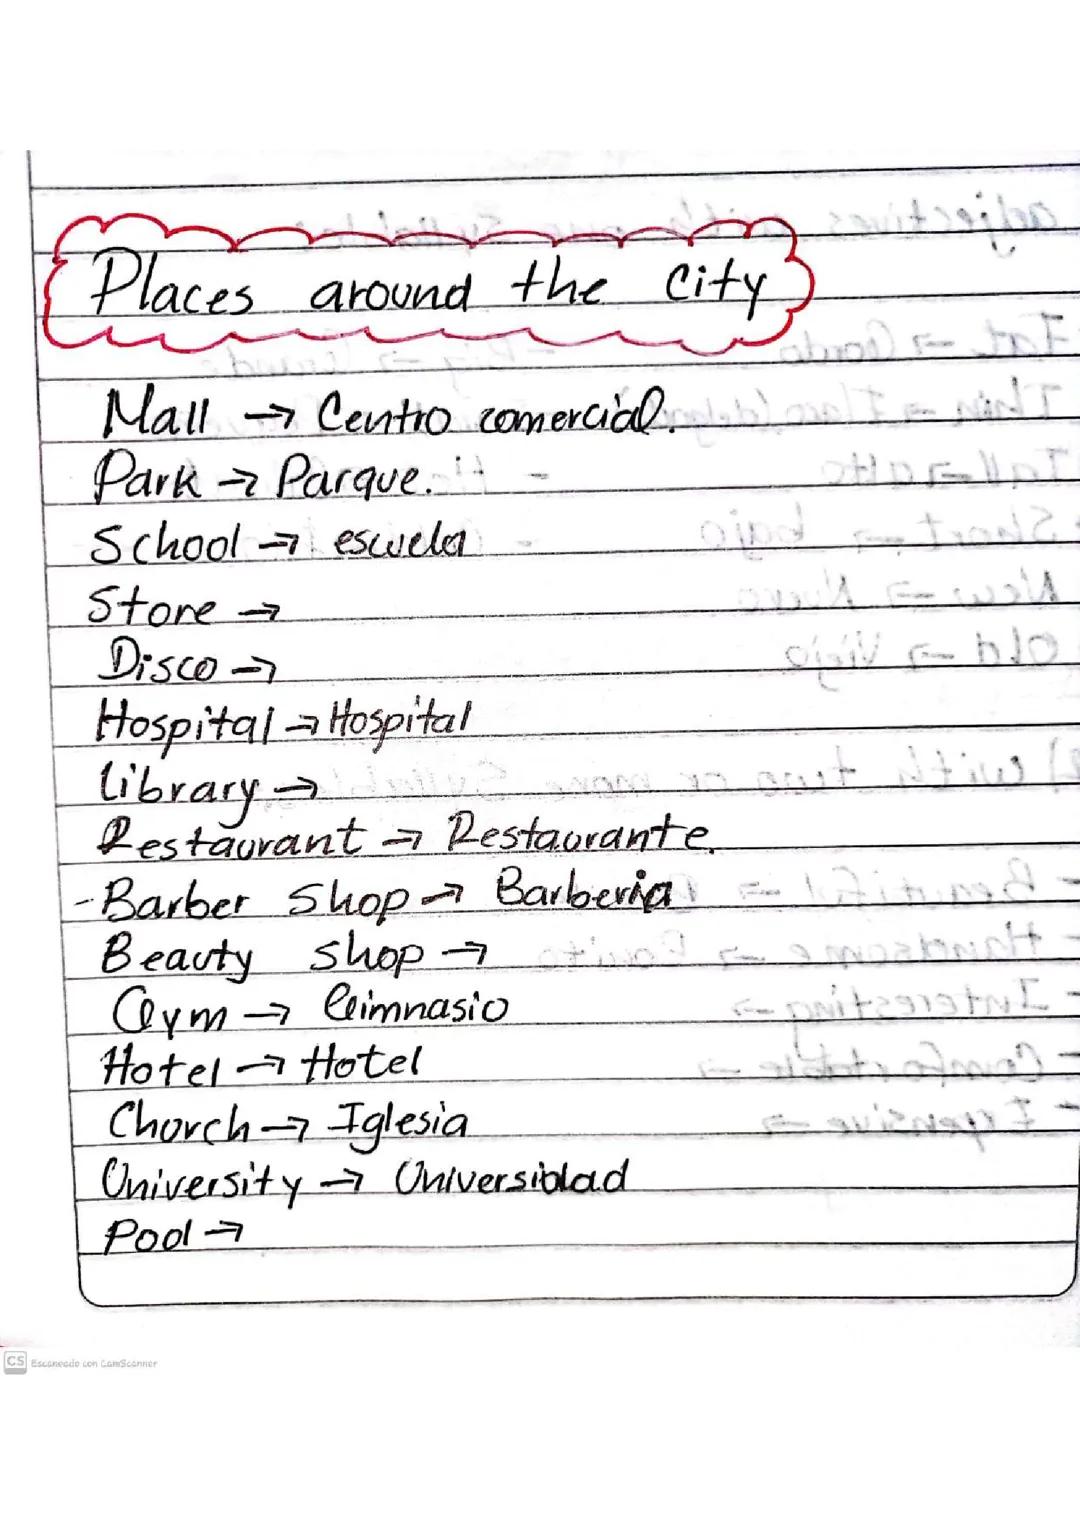 Places around the City
Mall → Centro comercial.
Park → Parque.
School → escuela
Store →
Disco →
Hospital → Hospital
Library →
Restaurant → Restaurante.
- Barber Shop → Barberia
Beauty shop →
Gym → Gimnasio
Hotel → Hotel
Church → Iglesia
University → Universidad
Pool →
CS Escaneado con CamScanner